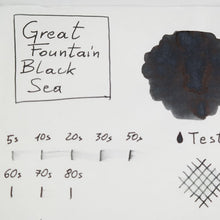 Great
Fountain
Black
Sea
5s 10s 20s 30s 50s
60s 70s 80s
Test